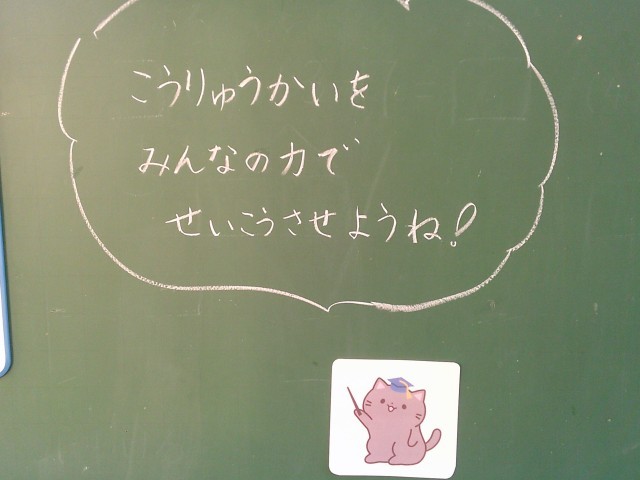 こうりゅうかいを
みんなの力で
せいこうさせようね!